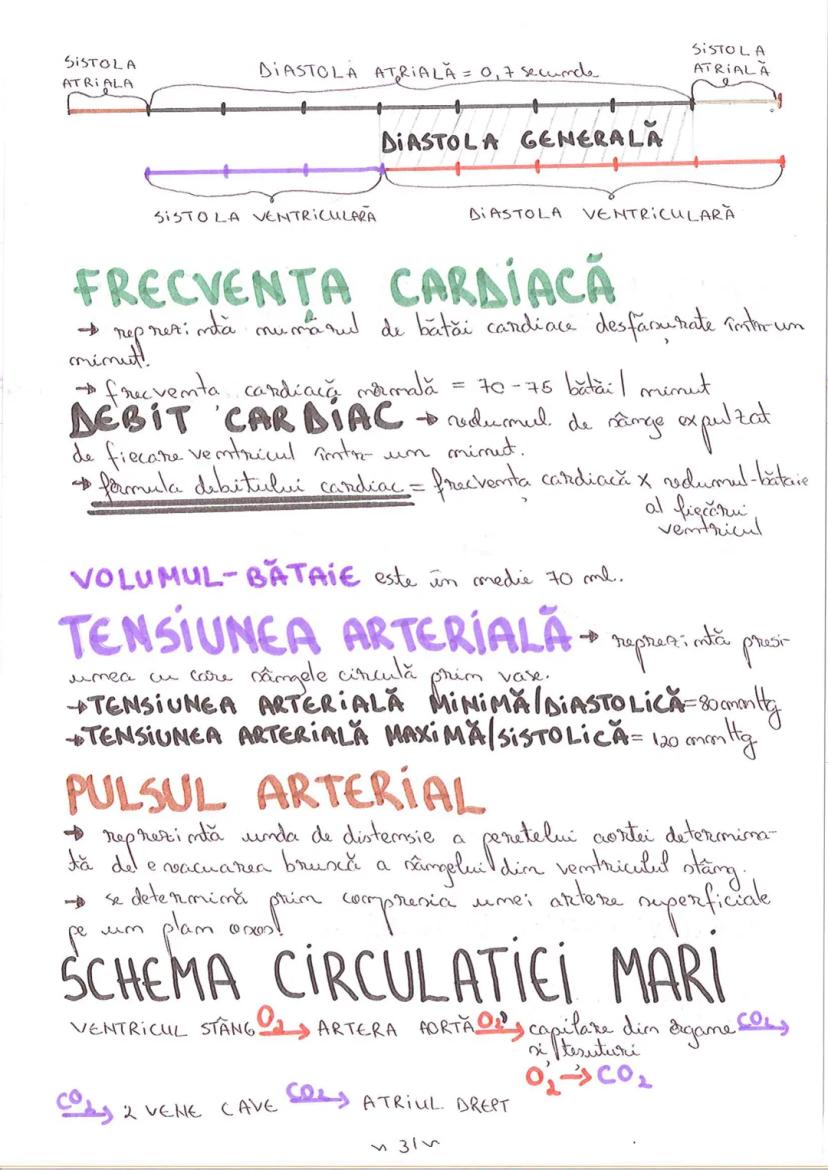 SISTOLA
ATRIALA
DIASTOLA ATRIALĂ = 0,7 secunde
SISTOLA
ATRIALĂ
DIASTOLA GENERALĂ
SISTOLA VENTRICULARĂ
DIASTOLA VENTRICULARĂ
FRECVENȚA CARDIACĂ
→ reprezintă numărul de bătăi cardiace desfășurate într-un
minut!
→ frecventa cardiacă normală = 70-75 bătăi/minut
DEBIT CARDIAC → volumul de sânge expulzat
de fiecare ventricul într-un minut.
→ formula debitului cardiac = frecvența cardiacă x volumul-bătaie
al fiecărui
ventricul
VOLUMUL-BĂTAIE este în medie 70 ml.
TENSIUNEA ARTERIALĂ → reprezintă presi-
unea cu care sângele circulă prin vase.
→ TENSIUNEA ARTERIALĂ MINIMĂ/DIASTOLICĂ = 80 mmHg
→ TENSIUNEA ARTERIALĂ MAXIMĂ/SISTOLICĂ = 120 mmHg
PULSUL ARTERIAL
→ reprezintă unda de distensie a peretelui aortei determina-
tă de evacuarea bruscă a sângelui din ventriculul stâng.
→ se determină prin compresia unei artere superficiale
pe un plan osos!
SCHEMA CIRCULATIEI MARI
VENTRICUL STÂNG O2→ ARTERA AORTĂ O2→ capilare din organe CO2→
și țesuturi
O2→CO2
CO2→ 2 VENE CAVE CO2→ ATRIUL DREPT
~ 31 ~